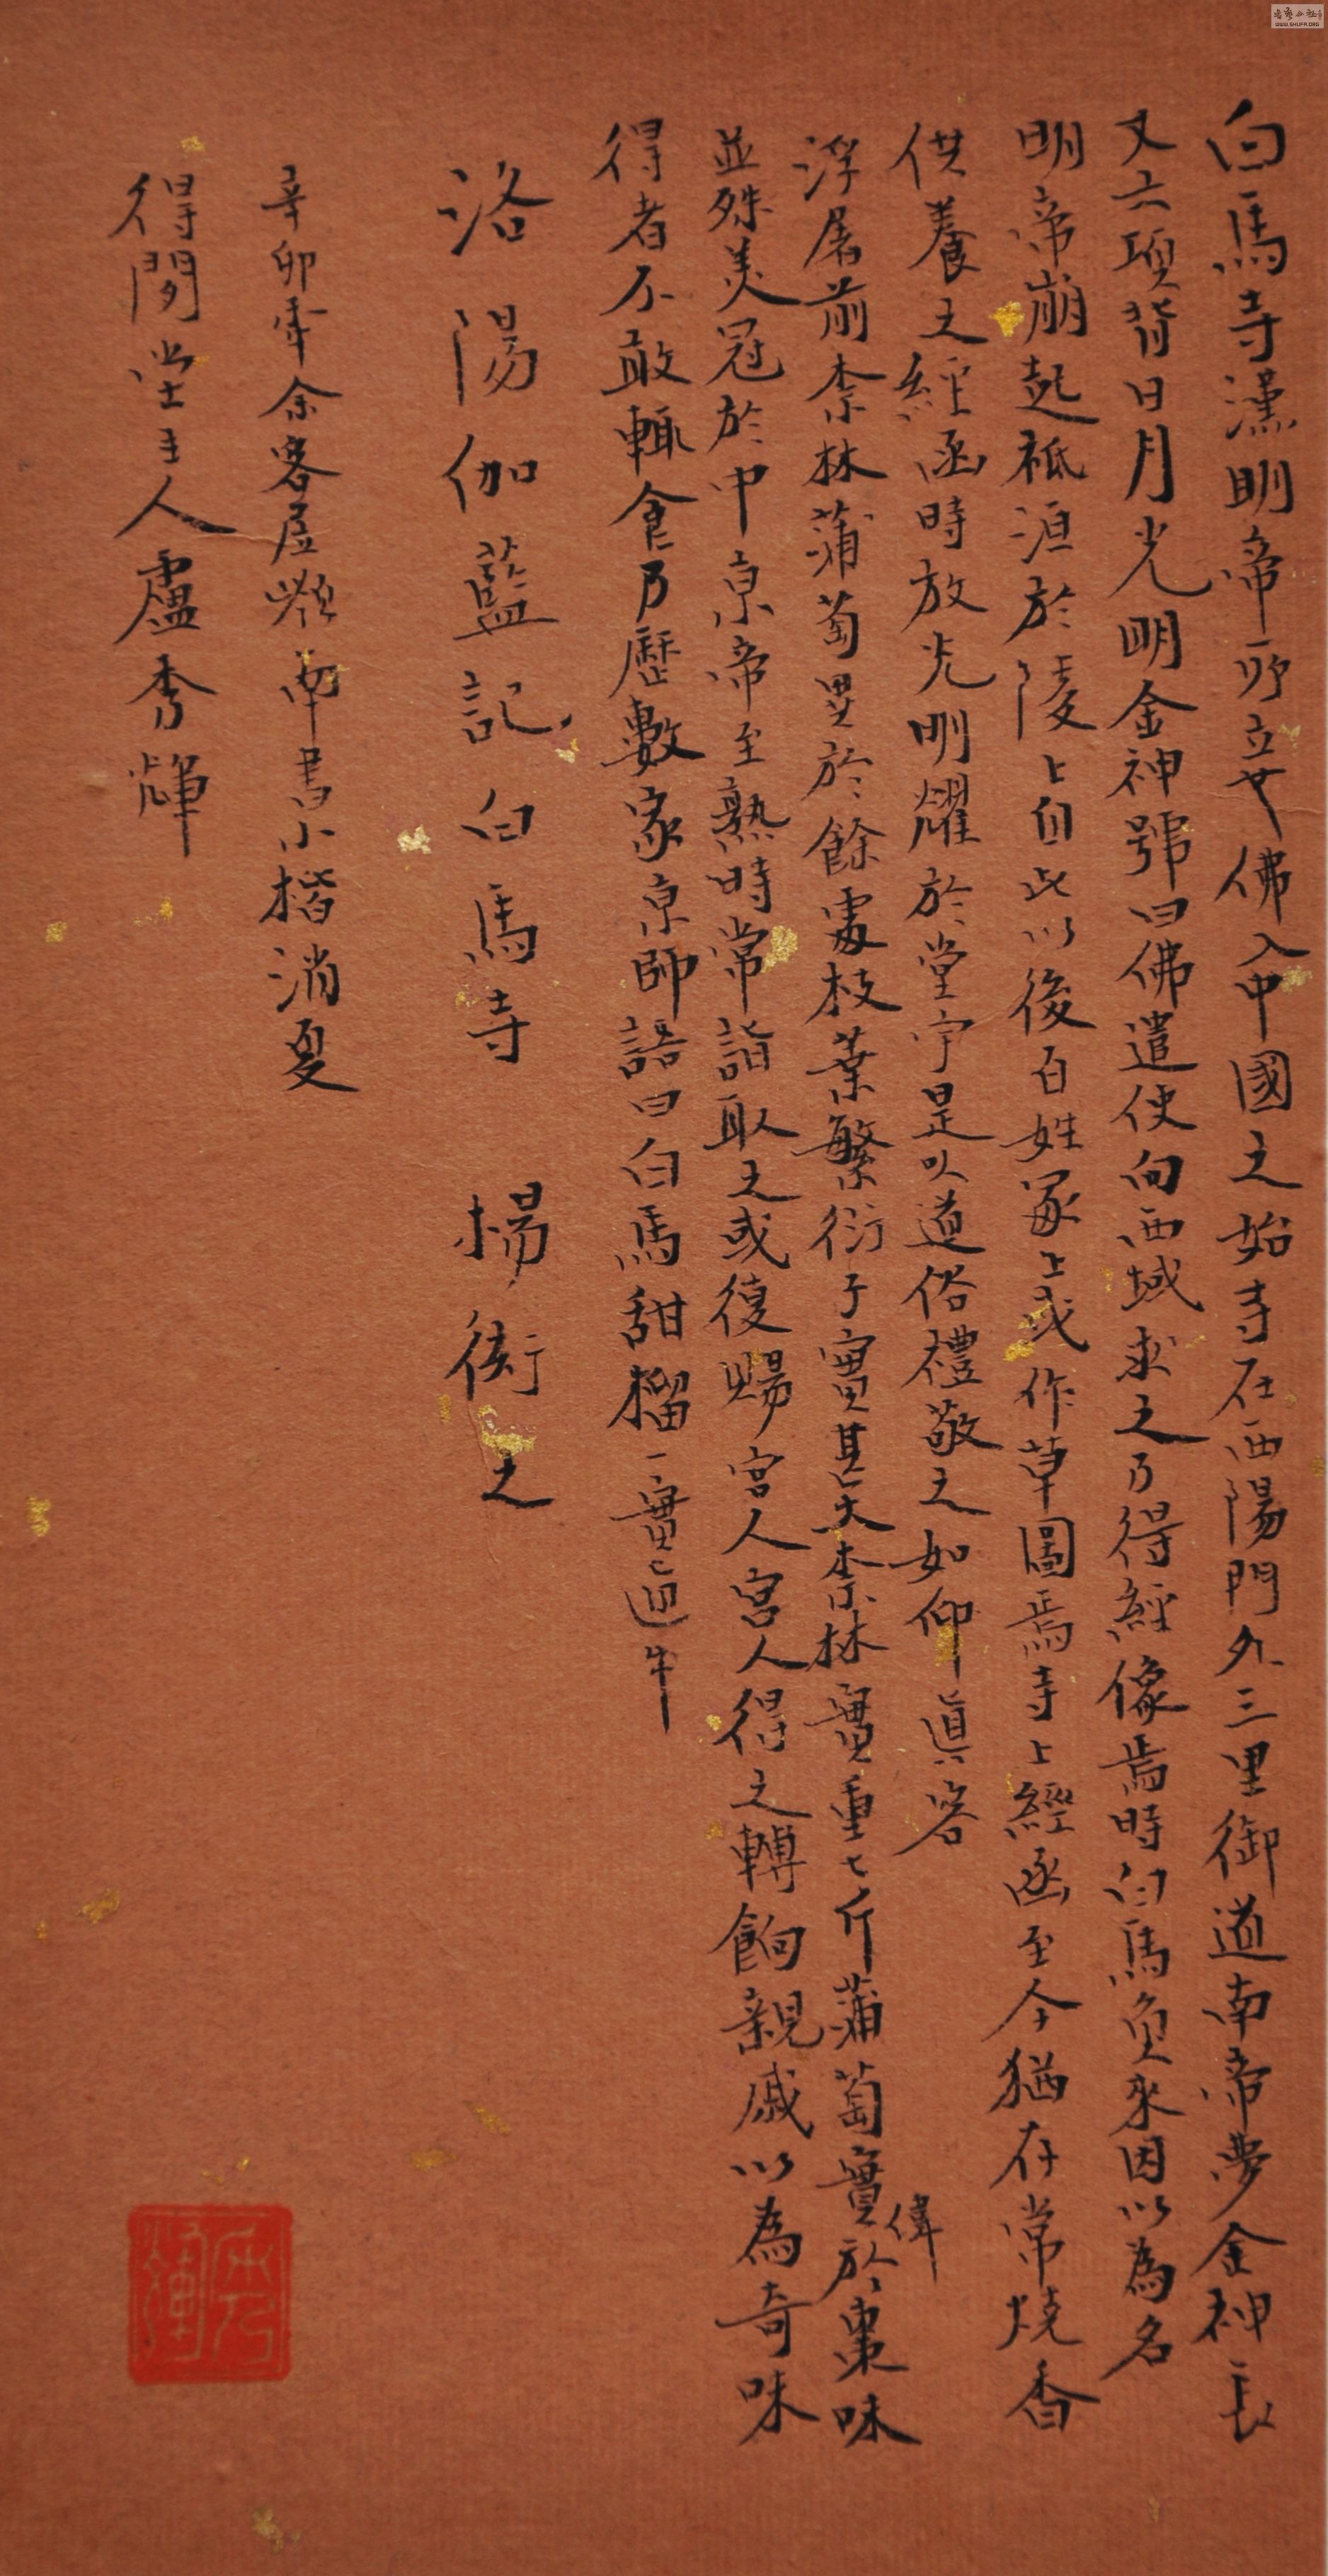 白馬寺漢明帝所立也佛入中國之始寺在西陽門外三里御道南帝夢金神長
丈六項背日月光明金神號曰佛遣使向西域求之乃得經像焉時白馬負來因以為名
明帝崩起祗洹於陵上自此以後百姓冢上或作草圖焉寺上經函至今猶存常燒香
供養之經函時放光明耀於堂宇是以道俗禮敬之如仰真容
浮屠前柰林蒲萄異於餘處枝葉繁衍子實甚大柰林實重七斤蒲萄實偉於棗味
並殊美冠於中京帝至熟時常詣取之或復賜宮人宮人得之轉餉親戚以為奇味
得者不敢輒食乃歷數家京師語曰白馬甜榴一實直牛
洛陽伽藍記白馬寺 楊衒之
辛卯年余客居嶺南書小楷消夏
得閑堂主人盧秀輝
秀輝
WWW.SHUFA.ORG